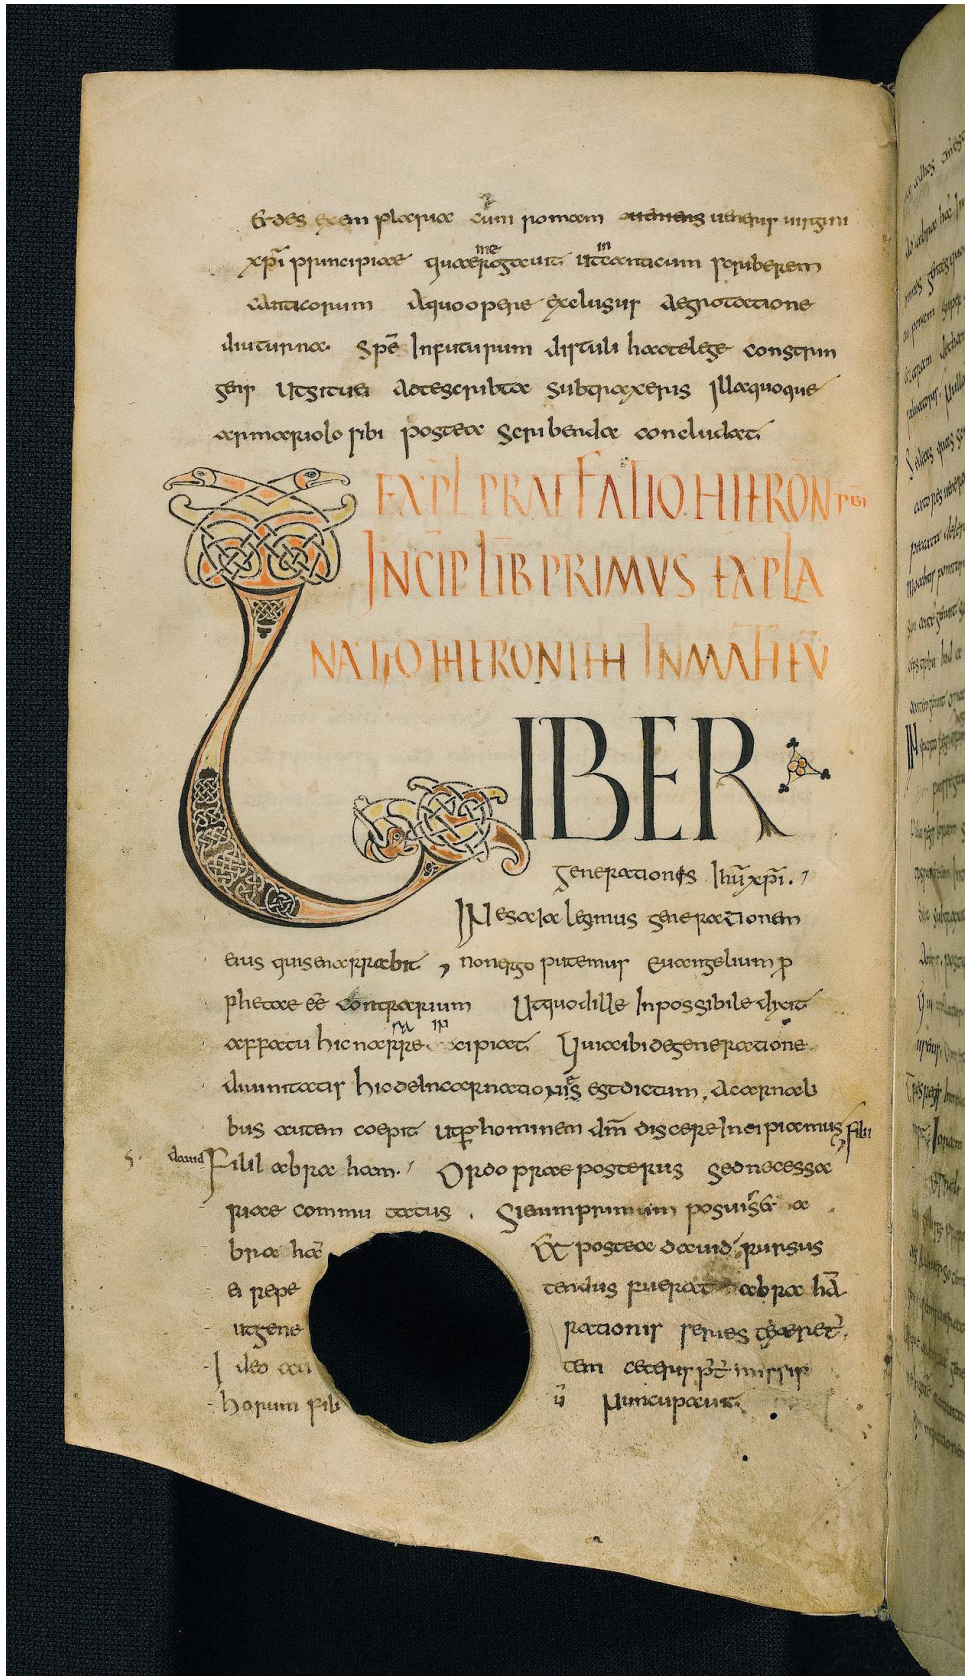 Et des exemplaria cum romam uieniens ueneris uirgini
xp̄i principiae quae me rogauit ut in canticum scriberem
canticorum A quo opere exclusus aegrotatione
diuturna. Spē In futurum distuli hac te lege constrin
gens Ut si tuei ad te scribta Subtraxeris Illa quoque
armariolo sibi postea Scribenda concludat
EXPL PRAEFATIO. HIERON PBI
INCIP LIB PRIMVS EXPLA
NATIO HIERONIMI IN MATTHEV̄
LIBER
generationis Ihū xp̄i.
IN esaia legimus generationem
eius quis enarrabit, non ergo putemus Euangelium p
phetae eē contrarium Ut quod ille Inpossibile dixit
appatu hic narrare incipiat Quia ibi de generatione
diuinitatis hic de Incarnationis est dictum, A carnali
bus autem coepit ut p hominem dm̄ discere Incipiamus, filii
dauid Filii abraham. Ordo praeposterus Sed necessa
riae commutatus. Si enim primum posuisset a
brahā Et postea dauid rursus
ei repetendus fuerat abrahā
ut generationis series texeret̄.
Ideo autem ceteris p̄t̄missis
horum filiū Nuncupauit